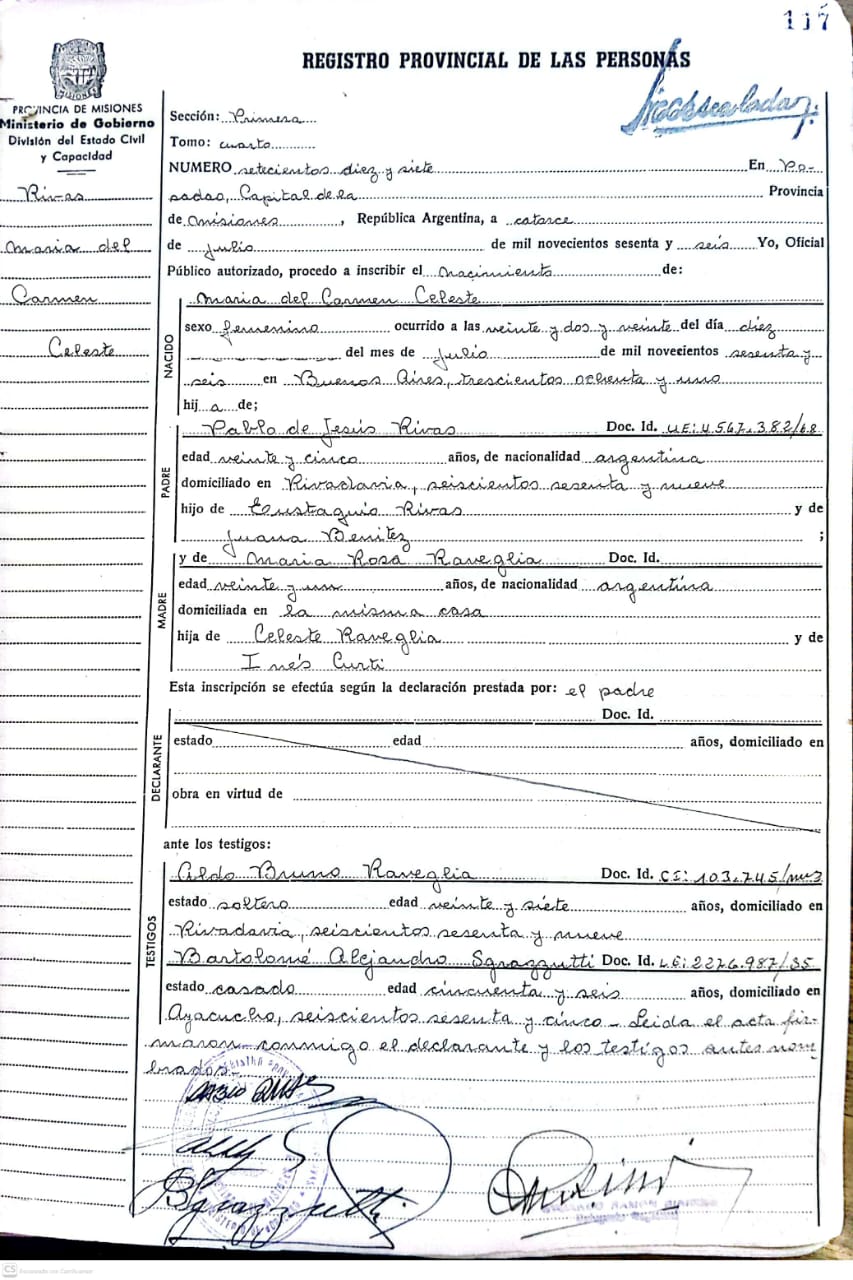 117
REGISTRO PROVINCIAL DE LAS PERSONAS
PROVINCIA DE MISIONES
Ministerio de Gobierno
División del Estado Civil
y Capacidad
Rivas
Maria del
Carmen
Celeste
Sección: Primera
Tomo: cuarto
NUMERO setecientos diez y siete En Po-
sadas, Capital de la Provincia
de Misiones, República Argentina, a catorce
de Julio de mil novecientos sesenta y seis Yo, Oficial
Público autorizado, procedo a inscribir el nacimiento de:
NACIDO
Maria del Carmen Celeste
sexo femenino ocurrido a las veinte y dos y veinte del día diez
del mes de Julio de mil novecientos sesenta y
seis en Buenos Aires, trescientos ochenta y uno
hij a de;
PADRE
Pablo de Jesús Rivas Doc. Id.
edad veinte y cinco años, de nacionalidad argentina
domiciliado en Rivadavia, seiscientos sesenta y nueve
hijo de Eustaquio Rivas y de
Juana Benitez ;
MADRE
y de Maria Rosa Raveglia Doc. Id.
edad veinte y un años, de nacionalidad argentina
domiciliada en la misma casa
hija de Celeste Raveglia y de
Inés Curti
Esta inscripción se efectúa según la declaración prestada por: el padre
DECLARANTE
Doc. Id.
estado edad años, domiciliado en
obra en virtud de
ante los testigos:
TESTIGOS
Aldo Bruno Raveglia Doc. Id. CI: 103.745
estado soltero edad veinte y siete años, domiciliado en
Rivadavia, seiscientos sesenta y nueve
Bartolomé Alejandro Sgrazzutti Doc. Id. LE: 2276.987/35
estado casado edad cincuenta y seis años, domiciliado en
Ayacucho, seiscientos sesenta y cinco - Leida el acta fir-
maron conmigo el declarante y los testigos antes nom
brados.-
CS Escaneado con CamScanner